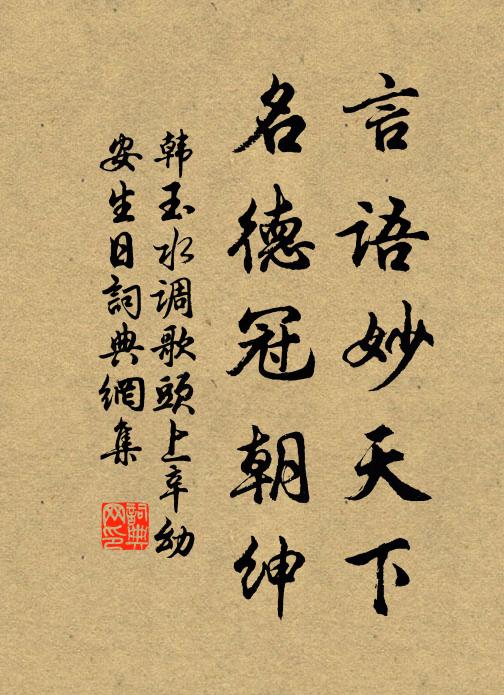 言语妙天下
名德冠朝绅
韩玉水调歌頭上辛幼
安生日詞典網集
詞典网印